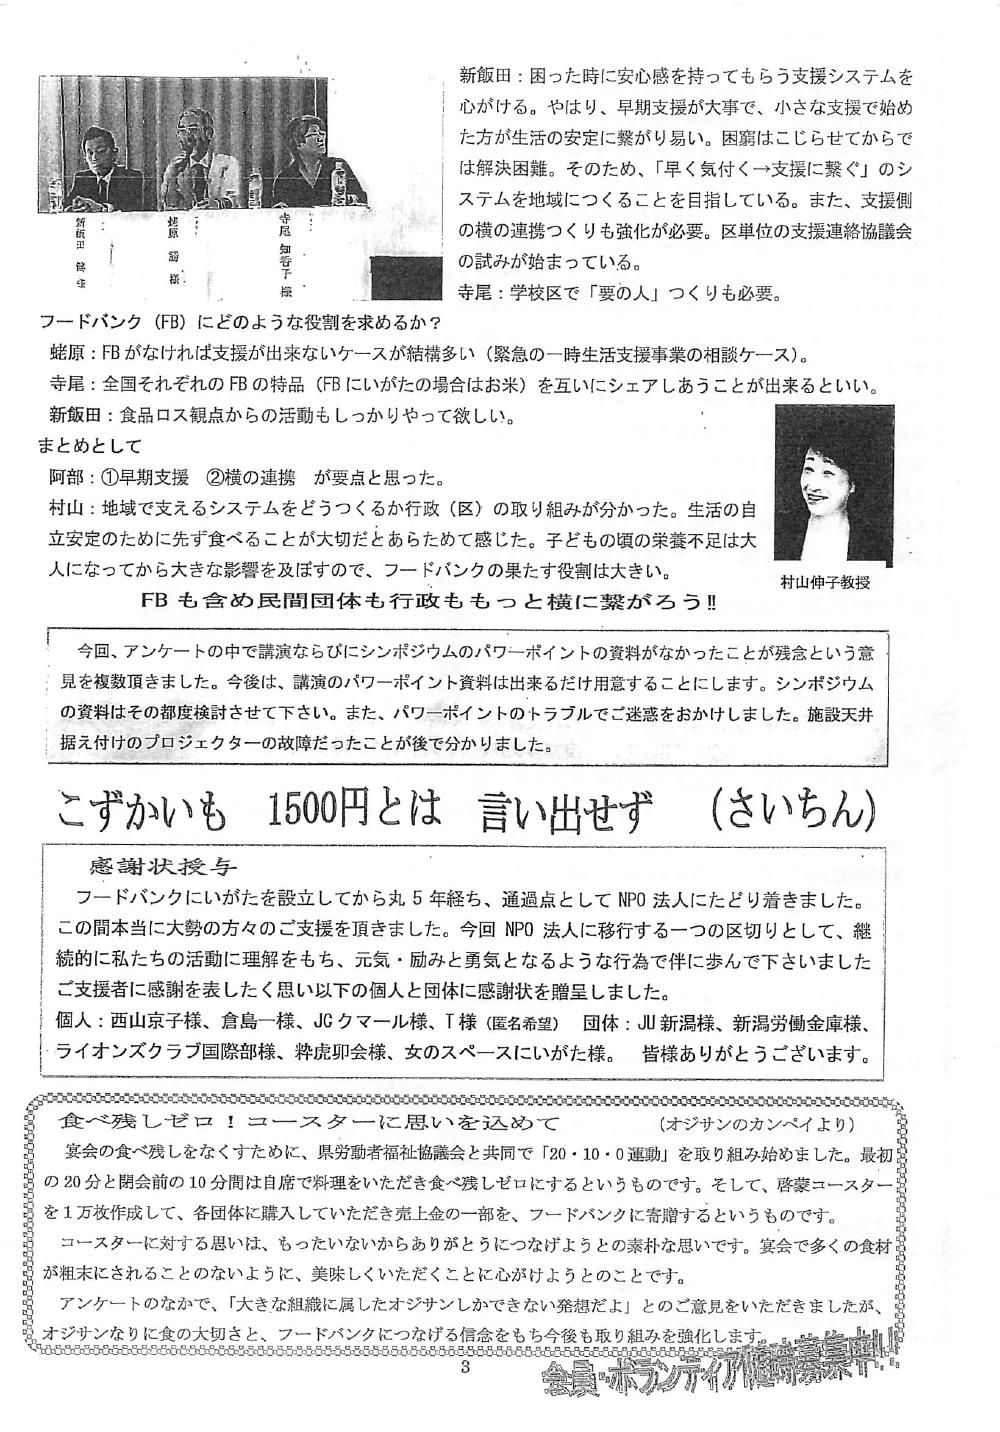 新飯田：困った時に安心感を持ってもらう支援システムを
心がける。やはり、早期支援が大事で、小さな支援で始め
た方が生活の安定に繋がり易い。困窮はこじらせてからで
は解決困難。そのため、「早く気付く→支援に繋ぐ」のシ
ステムを地域につくることを目指している。また、支援側
の横の連携つくりも強化が必要。区単位の支援連絡協議会
の試みが始まっている。
寺尾：学校区で「要の人」つくりも必要。
新飯田 様
蛯原 様
寺尾 知香子 様
フードバンク（FB）にどのような役割を求めるか？
蛯原：FBがなければ支援が出来ないケースが結構多い（緊急の一時生活支援事業の相談ケース）。
寺尾：全国それぞれのFBの特品（FBにいがたの場合はお米）を互いにシェアしあうことが出来るといい。
新飯田：食品ロス観点からの活動もしっかりやって欲しい。
まとめとして
阿部：①早期支援　②横の連携　が要点と思った。
村山：地域で支えるシステムをどうつくるか行政（区）の取り組みが分かった。生活の自
立安定のために先ず食べることが大切だとあらためて感じた。子どもの頃の栄養不足は大
人になってから大きな影響を及ぼすので、フードバンクの果たす役割は大きい。
村山伸子教授
FBも含め民間団体も行政ももっと横に繋がろう!!
今回、アンケートの中で講演ならびにシンポジウムのパワーポイントの資料がなかったことが残念という意
見を複数頂きました。今後は、講演のパワーポイント資料は出来るだけ用意することにします。シンポジウム
の資料はその都度検討させて下さい。また、パワーポイントのトラブルでご迷惑をおかけしました。施設天井
据え付けのプロジェクターの故障だったことが後で分かりました。
こずかいも　1500円とは　言い出せず　（さいちん）
感謝状授与
フードバンクにいがたを設立してから丸５年経ち、通過点として NPO 法人にたどり着きました。
この間本当に大勢の方々のご支援を頂きました。今回 NPO 法人に移行する一つの区切りとして、継
続的に私たちの活動に理解をもち、元気・励みと勇気となるような行為で伴に歩んで下さいました
ご支援者に感謝を表したく思い以下の個人と団体に感謝状を贈呈しました。
個人：西山京子様、倉島一様、JGクマール様、T様（匿名希望）　団体：JU新潟様、新潟労働金庫様、
ライオンズクラブ国際部様、粋虎卯会様、女のスペースにいがた様。　皆様ありがとうございます。
食べ残しゼロ！コースターに思いを込めて　（オジサンのカンペイより）
宴会の食べ残しをなくすために、県労働者福祉協議会と共同で「20・10・0運動」を取り組み始めました。最初
の20分と閉会前の10分間は自席で料理をいただき食べ残しゼロにするというものです。そして、啓蒙コースター
を１万枚作成して、各団体に購入していただき売上金の一部を、フードバンクに寄贈するというものです。
コースターに対する思いは、もったいないからありがとうにつなげようとの素朴な思いです。宴会で多くの食材
が粗末にされることのないように、美味しくいただくことに心がけようとのことです。
アンケートのなかで、「大きな組織に属したオジサンしかできない発想だよ」とのご意見をいただきましたが、
オジサンなりに食の大切さと、フードバンクにつなげる信念をもち今後も取り組みを強化します。
3
会員・ボランティア随時募集中!!